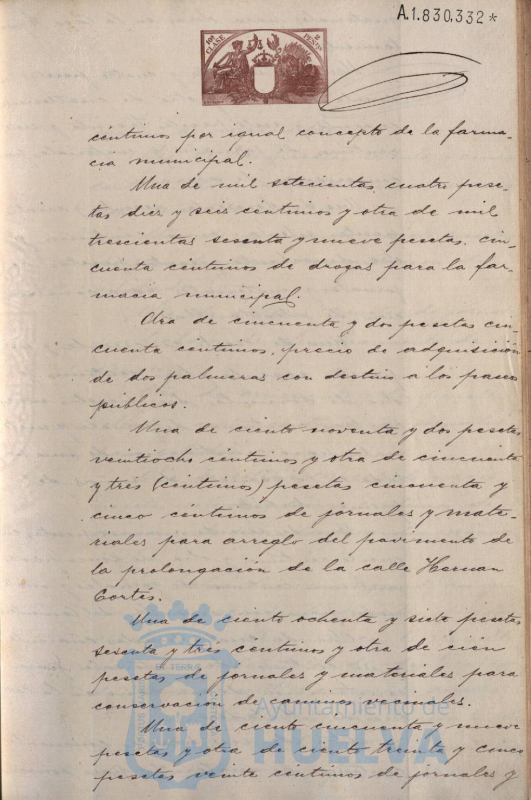 A.1.830.332*
10ª CLASE 2 PESETS
céntimos por igual concepto de la farma-
cia municipal.
Una de mil setecientas cuatro pese-
tas diez y seis céntimos y otra de mil
trescientas sesenta y nueve pesetas cin-
cuenta céntimos de drogas para la far-
macia municipal.
Otra de cincuenta y dos pesetas cin
cuenta céntimos, precio de adquisición
de dos palmeras con destino a los paseos
públicos.
Una de ciento noventa y dos pesetas
veintiocho céntimos y otra de cincuenta
y tres (céntimos) pesetas cincuenta y
cinco céntimos de jornales y mate-
riales para arreglo del pavimento de
la prolongación de la calle Hernan
Cortés.
Una de ciento ochenta y siete pesetas
sesenta y tres céntimos y otra de cien
pesetas de jornales y materiales para
conservación de caminos vecinales.
Una de ciento cincuenta y nueve
pesetas y otra de ciento treinta y cinco
pesetas veinte céntimos de jornales y
Ayuntamiento de
HUELVA